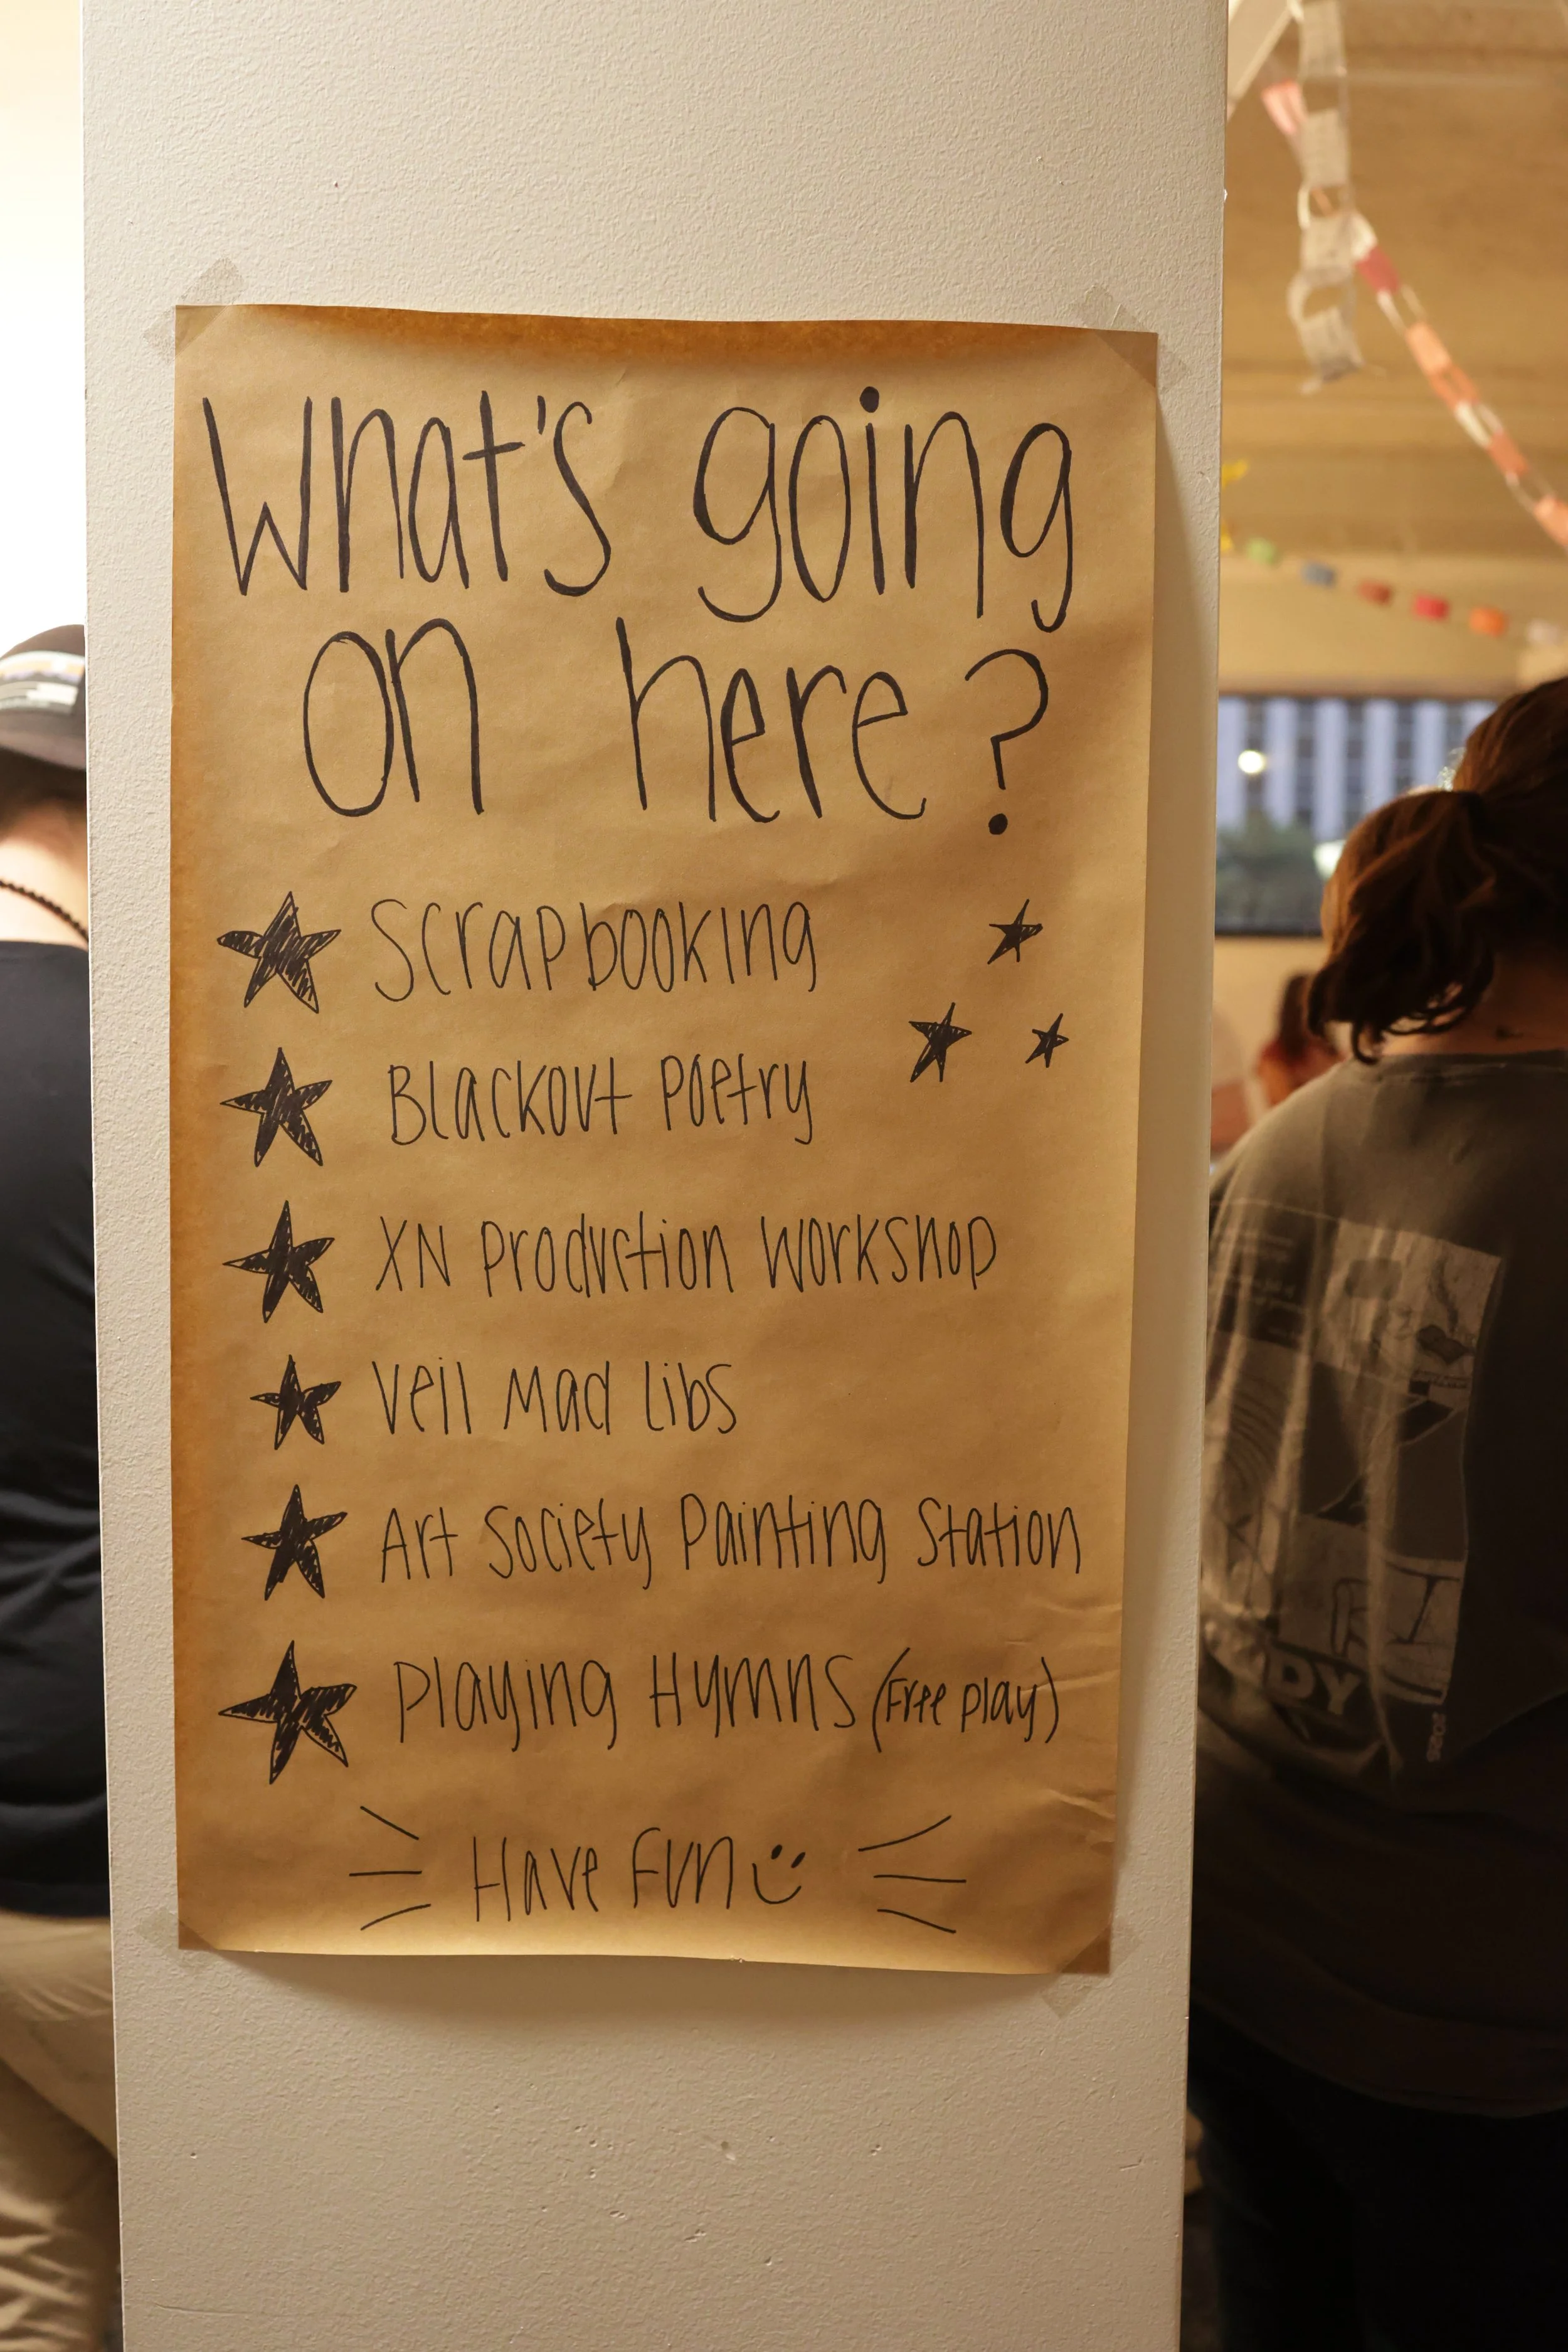 What's going
on here?
Scrapbooking
Blackout Poetry
XN Production Workshop
Veil Mad Libs
Art Society Painting Station
Playing Hymns (Free play)
Have Fun
DY
2025